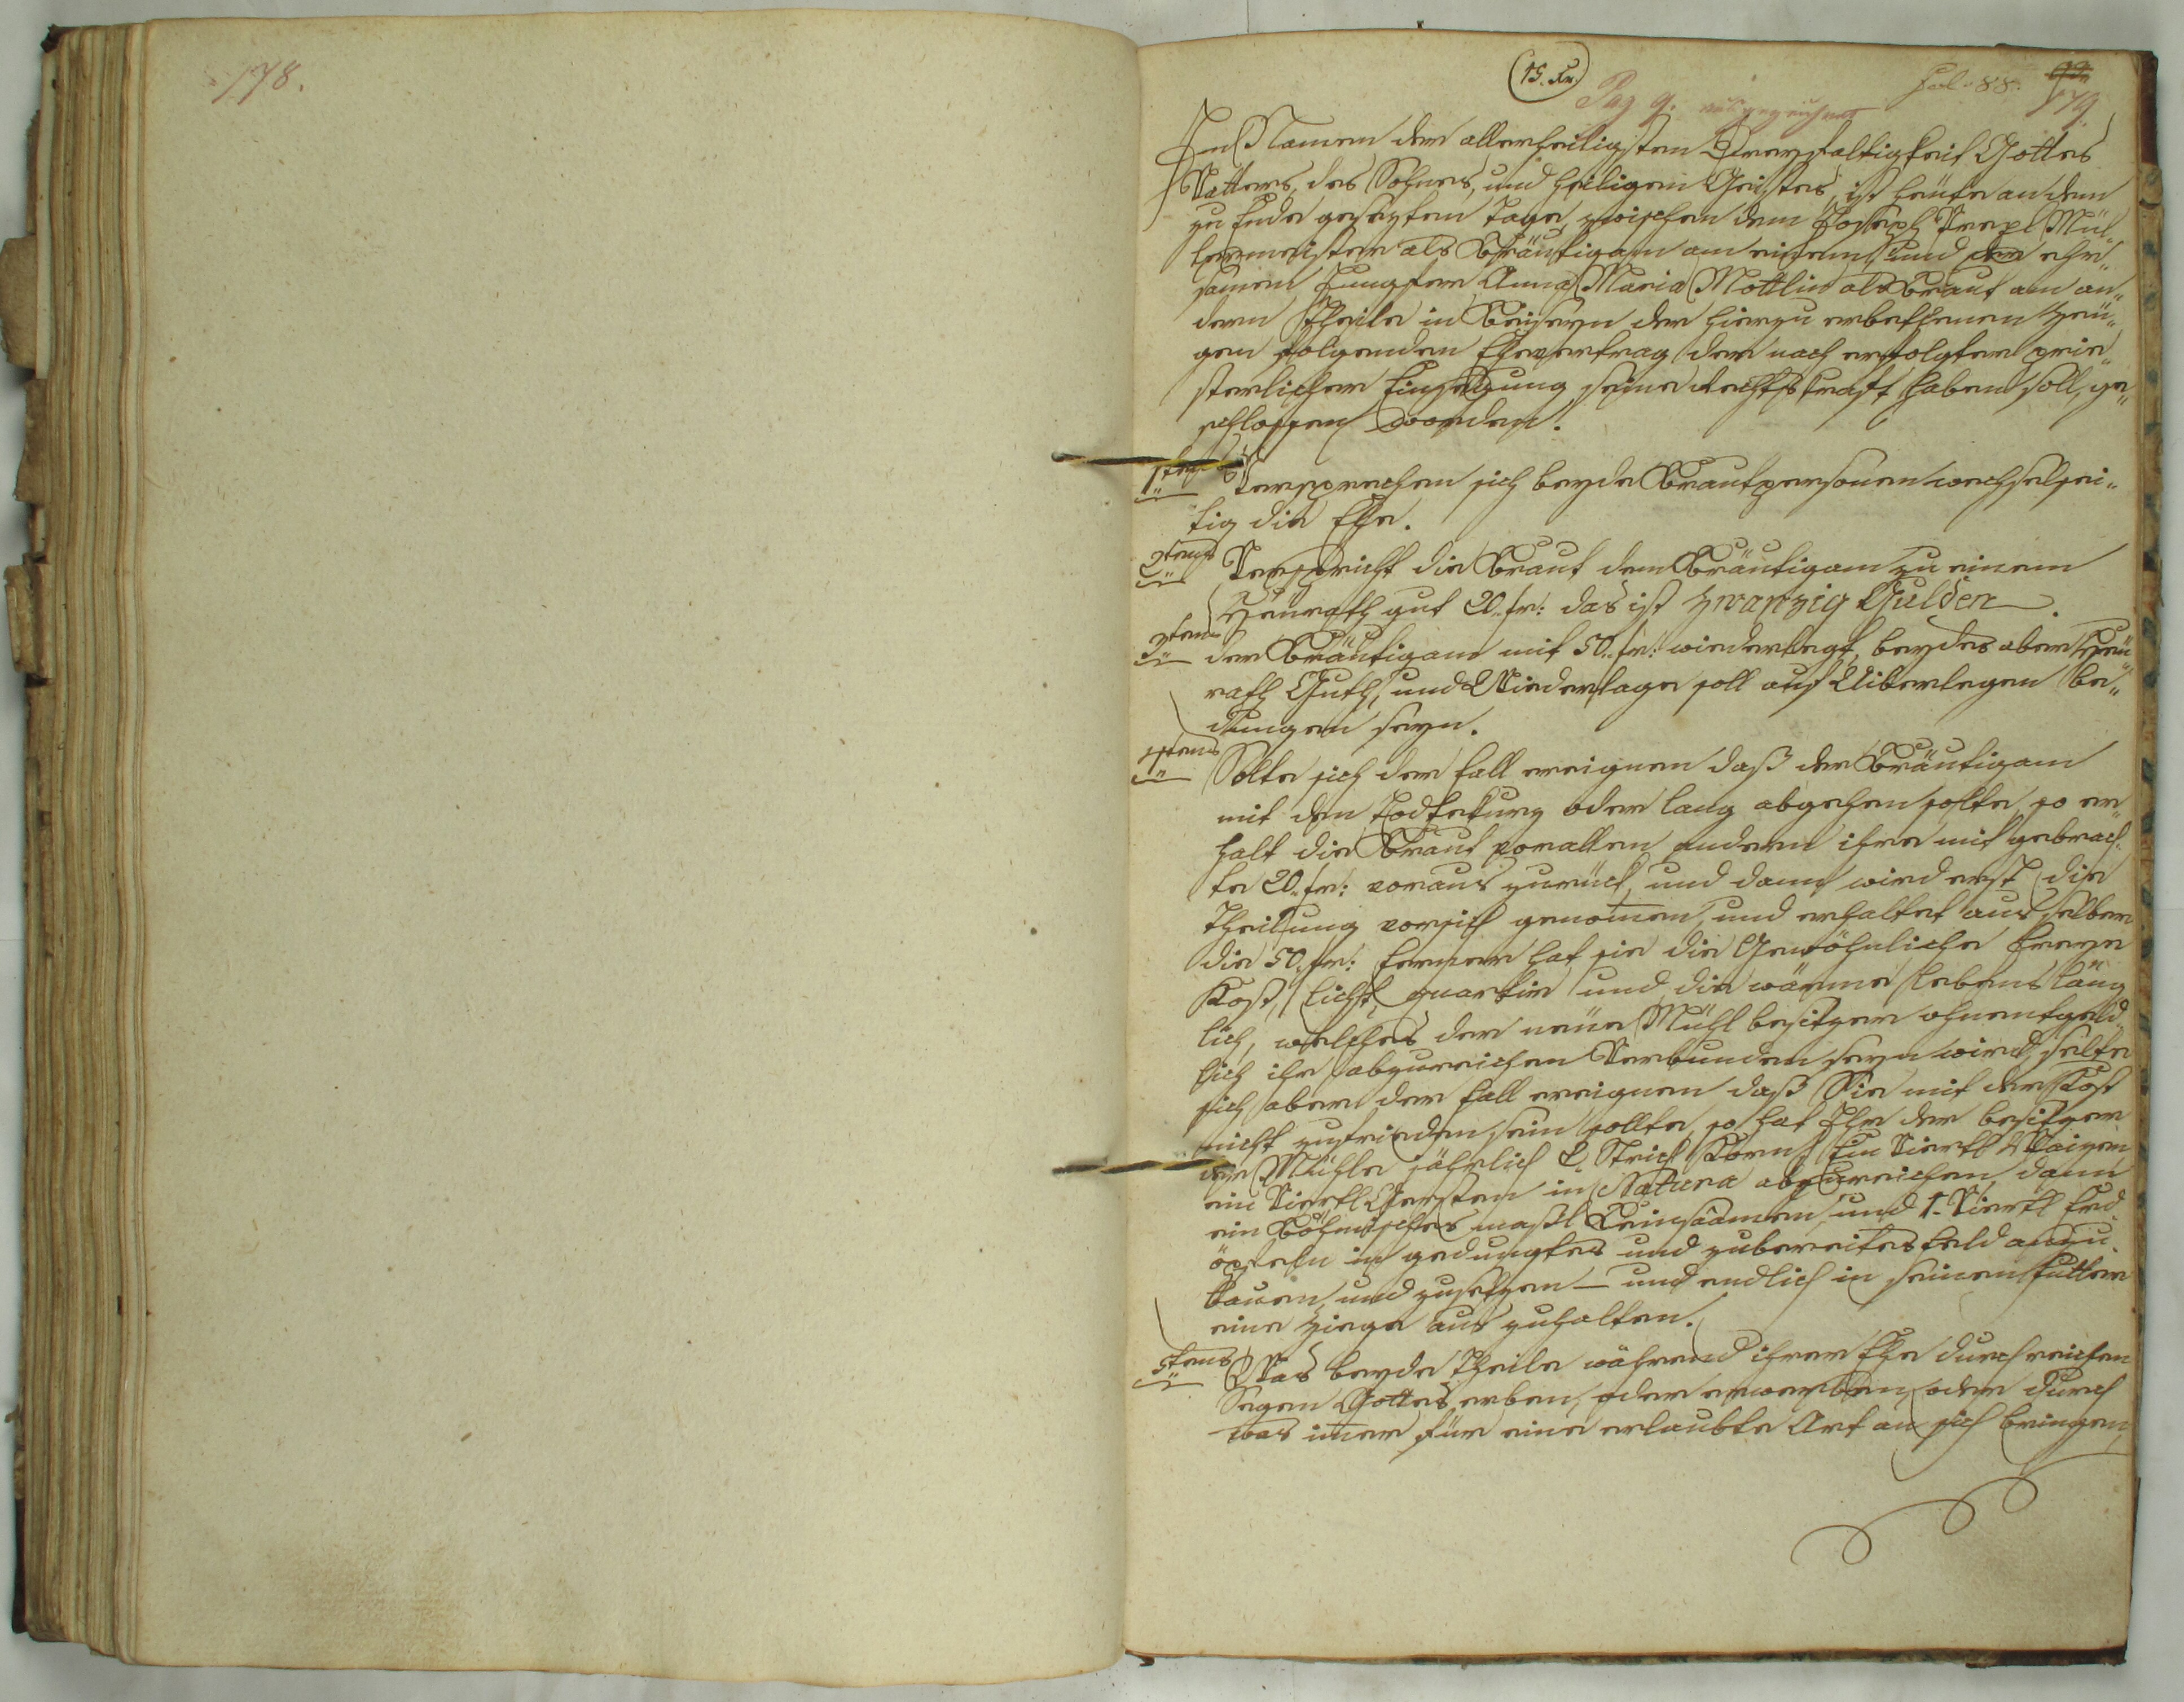 178.
15. Kr.
Pag 9.
Fol. 88.
179
Im Namen der allerheiligsten Dreyfaltigkeit Gottes
Vatters, des Sohnes, und heiligen Geistes, ist heute an dem
zu Ende gesezten Tage, zwischen dem Joseph Trepl Mül„
lermeister als Bräutigam am einem, und der ehr„
samen Jungfer Anna Maria Mottlin als Braut am an„
dern Theile in Beiseyn der hierzu erbethenen Zeü„
gen folgenden Ehevertrag, der nach erfolgter prie„
sterlicher Einsegnung seine Rechtskraft haben soll, ge„
schlossen worden.
1tens Versprechen sich beyde Brautpersonen wechselsei„
tig die Ehe.
2tens Verspricht die Braut dem Bräutigam zu einem
Heurath gut 20. fr: das ist zwanzig Gulden.
3tens der Bräutigam mit 50. fr: wiederlegt, beydes aber Heü„
rath Guth, und Wiederlage soll auf Uiberlegen be„
dungen seyn.
4tens Solte sich der fall ereignen daß der Bräutigam
mit den Tod kurz oder lang abgehen solte, so er„
halt die Braut vor allen andern ihre mit gebrach„
te 20. fr: voraus zurück, und dann wird erst die
Theilung vorsich genomen, und erhaltet aus selber
die 50. fr: ferner hat sie die Gewöhnliche freye
Kost, licht, quartir und die wärme lebens läng
lich, welches der neüe Mühl besitzer ohnentgeld
lich ihr abzureichen Verbunden seyn wird, solte
sich aber der fall ereignen daß Sie mit der Kost
nicht zufrieden sein sollte, so hat Ihr der besitzer
der Mühle jährlich 2 Strich Korn, Ein Viertl Waizen
ein Viertl Gersten in Natura abzureichen, dann
ein Böhmisches maßl Leinsaamen, und 1. Viertl Erd
äpfeln in gedungtes und zubereites feld anzu
bauen, und zusetzen – und endlich in seinen futter
eine Ziege aus zuhalten.
5tens Was beyde Theile während ihrer Ehe durch reichen
Segen Gottes erben, oder erwerben, oder durch
was imer für eine erlaubte Art an sich bringen,